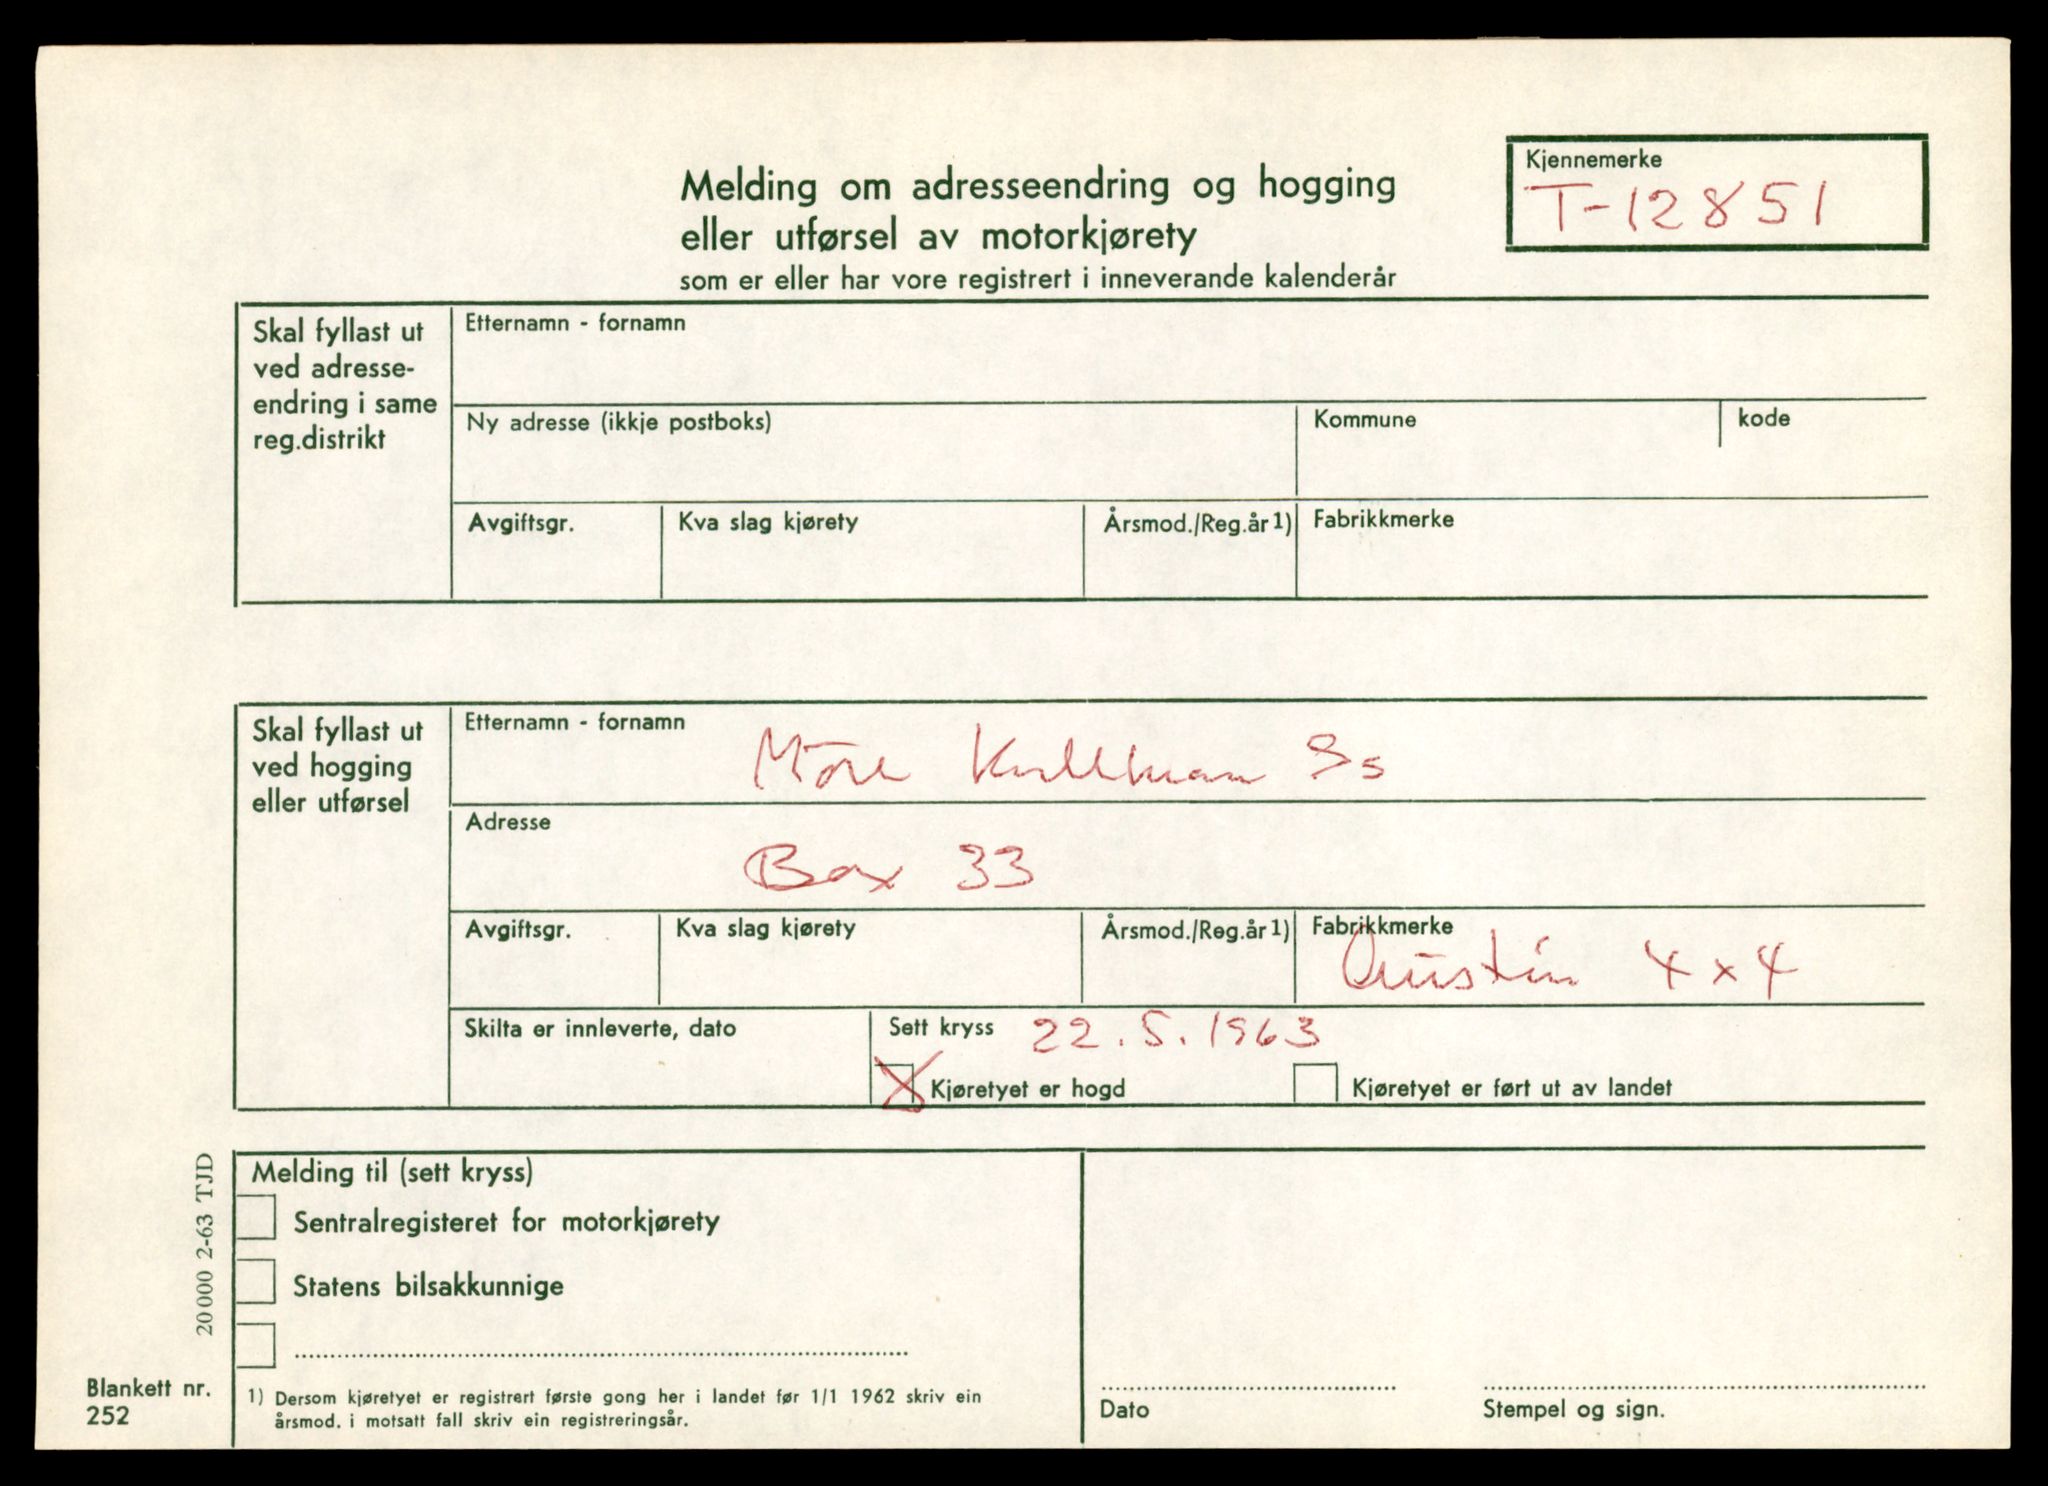 Kjennemerke
T-12851
Melding om adresseendring og hogging
eller utførsel av motorkjørety
som er eller har vore registrert i inneverande kalenderår
Skal fyllast ut
ved adresse-
endring i same
reg.distrikt
Etternamn - fornamn
Ny adresse (ikkje postboks)
Kommune
kode
Avgiftsgr.
Kva slag kjørety
Årsmod./Reg.år 1)
Fabrikkmerke
Skal fyllast ut
ved hogging
eller utførsel
Etternamn - fornamn
Möre
Adresse
Box 33
Avgiftsgr.
Kva slag kjørety
Årsmod./Reg.år 1)
Fabrikkmerke
Austin 4x4
Skilta er innleverte, dato
Sett kryss 22.5.1963
X Kjøretyet er hogd
Kjøretyet er ført ut av landet
Melding til (sett kryss)
Sentralregisteret for motorkjørety
Statens bilsakkunnige
20 000 2-63 TJD
Blankett nr.
252
1) Dersom kjøretyet er registrert første gong her i landet før 1/1 1962 skriv ein
årsmod. i motsatt fall skriv ein registreringsår.
Dato
Stempel og sign.